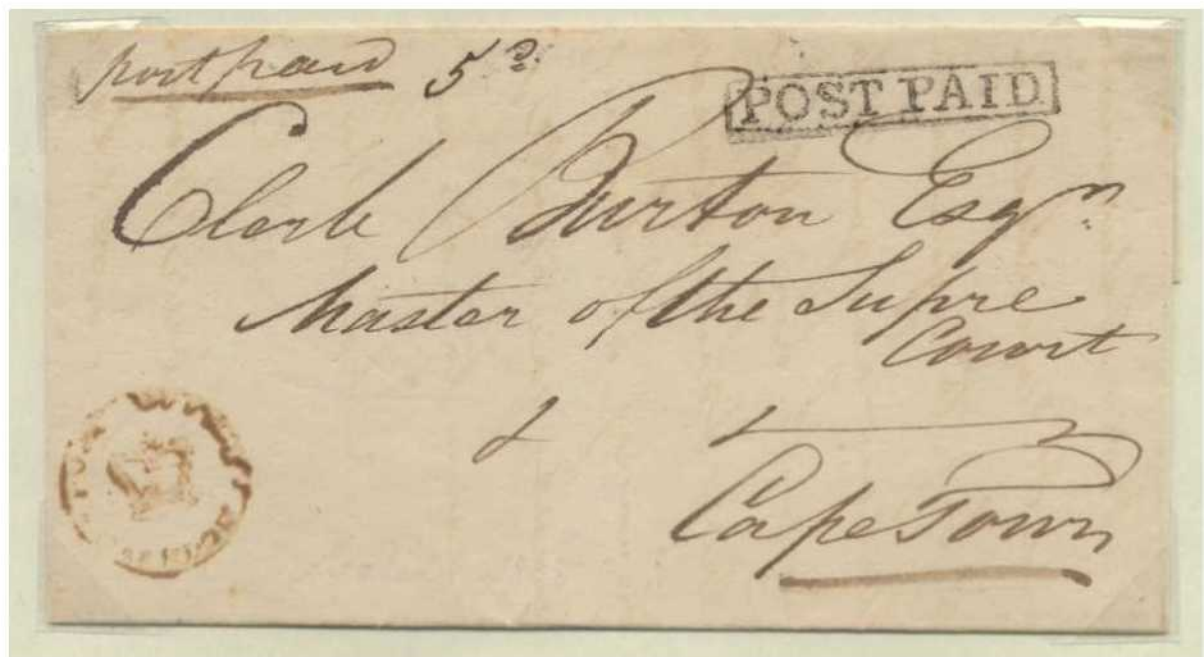 post paid 5d.
POST PAID
Clerk Burton Esqr.
Master of the Supre
Court
Cape Town